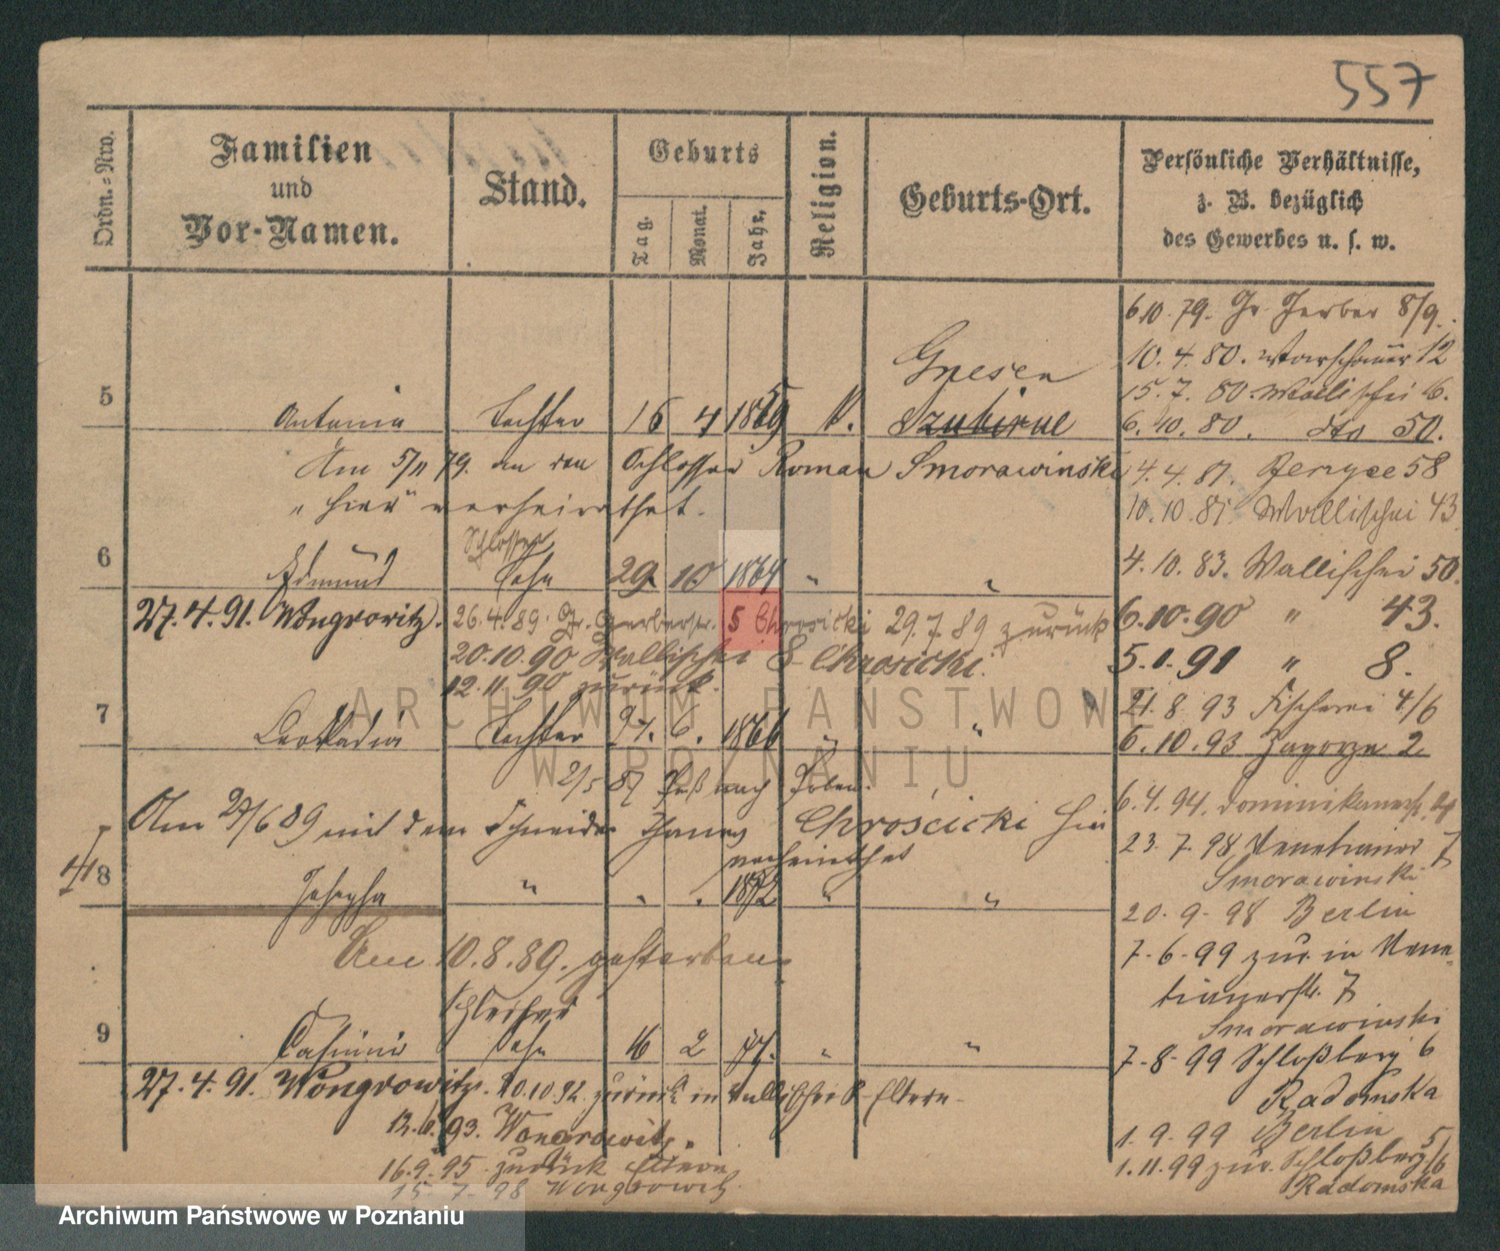 557
Ordn.-Nro.
Familien
und
Vor-Namen.
Stand.
Geburts
Tag.
Monat.
Jahr.
Religion.
Geburts-Ort.
Persönliche Verhältnisse,
z. B. bezüglich
des Gewerbes u. s. w.
6.10.79. Gr. Gerber 8/9.
10.4.80. Warschauer 12
15.7.80. Wallischei 6.
Gnesen
5 Antonia Tochter 16 4 1859 K. Szubin
6.10.80. dto 50.
Am 5/11 79. an den Schlosser Roman Smorawinski
4.4.81. 58
"hier" verheirathet.
10.10.81. Wallischei 43
Schlosser
6 Edmund Sohn 29 10 1864 " "
4.10.83. Wallischei 50.
27.4.91. Wongrowitz. 26.4.89. Gr. Gerberstr. 5 Chroscicki 29.7.89 zurück
6.10.90 " 43.
20.10.90 Wallischei 8 Chroscicki.
5.1.91 " 8.
12.11.90 zurück.
21.8.93 Fischerei 4/6
7 Leokadia Tochter 6. 1866 " "
6.10.93 Zagorze 2.
2/5 87 Paß nach Polen.
6.4.94. Dominikanerstr.
Am 27/6 89 mit dem Schneider Chroscicki hier
verheirathet
23.7.98 Venetianer 7
Smorawinski
8 Josepha " " " 1872 " "
20.9.98 Berlin
Am 10.8.89. gestorben.
7.6.99 zur. in Vene-
tianerstr. 7
Smorawinski
Schleifer
9 Casimir Sohn 16 2 77. " "
7.8.99 Schloßberg 6
Radomska
27.4.91. Wongrowitz. 10.10.92. zurück in Wallischei 8 Eltern.
93. Wongrowitz.
1.9.99 Berlin
16.9.95 zurück Eltern
1.11.99 zur. Schloßberg 5/6
Radomska
15.7.98 Wongrowitz.
ARCHIWUM PAŃSTWOWE
W POZNANIU
Archiwum Państwowe w Poznaniu